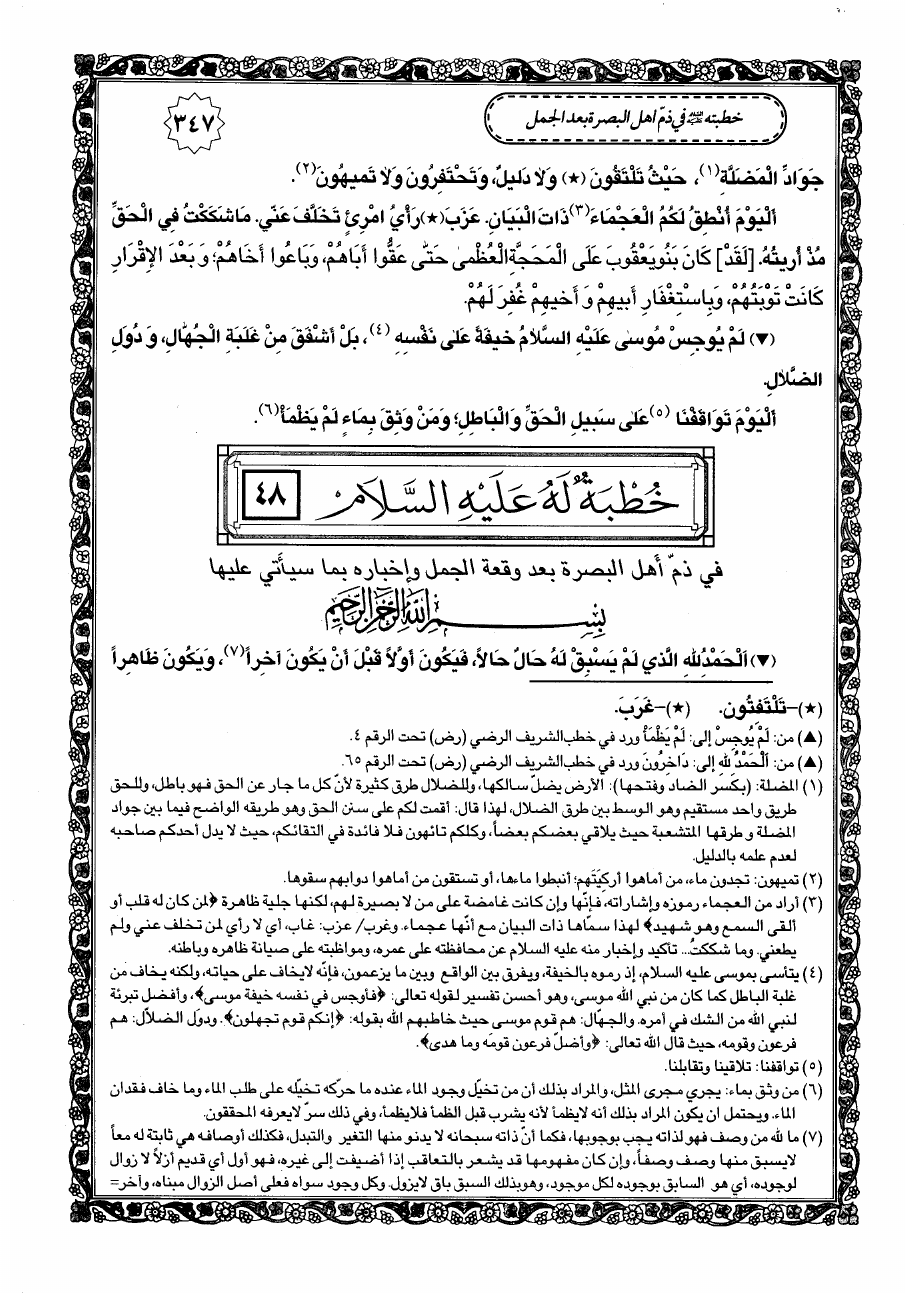 خطبته ﵇ في ذمّ أهل البصرة بعد الجمل
٣٤٧
جَوَادِّ الْمَضَلَّةِ(١)، حَيْثُ تَلْتَقُونَ (★) وَلاَ دَليلٌ، وَتَحْتَفِرُونَ وَلاَ تَميهُونَ(٢).
أَلْيَوْمَ أُنْطِقُ لَكُمُ الْعَجْمَاءَ(٣) ذَاتَ الْبَيَانِ. عَزَبَ(★) رَأْيُ امْرِئٍ تَخَلَّفَ عَنّي. مَا شَكَكْتُ فِي الْحَقِّ
مُذْ أُريتُهُ. [لَقَدْ] كَانَ بَنُو يَعْقُوبَ عَلَى الْمَحَجَّةِ الْعُظْمىٰ حَتّٰى عَقُّوا أَبَاهُمْ، وَبَاعُوا أَخَاهُمْ؛ وَبَعْدَ الإِقْرَارِ
كَانَتْ تَوْبَتُهُمْ، وَبِاسْتِغْفَارِ أَبيهِمْ وَ أَخيهِمْ غُفِرَ لَهُمْ.
(▼) لَمْ يُوجِسْ مُوسىٰ عَلَيْهِ السَّلاَمُ خيفَةً عَلىٰ نَفْسِهِ (٤)، بَلْ أَشْفَقَ مِنْ غَلَبَةِ الْجُهَّالِ، وَ دُوَلِ
الضَّلاَلِ.
أَلْيَوْمَ تَوَاقَفْنَا (٥) عَلىٰ سَبيلِ الْحَقِّ وَالْبَاطِلِ؛ وَمَنْ وَثِقَ بِمَاءٍ لَمْ يَظْمَأْ(٦).
خُطْبَةٌ لَهُ عَلَيْهِ السَّلَامُ ٤٨
في ذمّ أهل البصرة بعد وقعة الجمل وإخباره بما سيأتي عليها
بِسْمِ اللهِ الرَّحْمٰنِ الرَّحِيمِ
(▼) اَلْحَمْدُ لِلّٰهِ الَّذي لَمْ يَسْبِقْ لَهُ حَالٌ حَالاً، فَيَكُونَ أَوَّلاً قَبْلَ أَنْ يَكُونَ آخِراً(٧)، وَيَكُونَ ظَاهِراً
(★)-تَلْتَفِتُون. (★)-غَرَبَ.
(▲) من: لَمْ يُوجِسْ إلى: لَمْ يَظْمَأْ ورد في خطب الشريف الرضي (رض) تحت الرقم ٤.
(▲) من: اَلْحَمْدُ لِلّٰهِ إلى: دَاخِرُونَ ورد في خطب الشريف الرضي (رض) تحت الرقم ٦٥.
(١) المضلة: (بكسر الضاد وفتحها): الأرض يضلّ سالكها، وللضلال طرق كثيرة لأنّ كل ما جار عن الحق فهو باطل، وللحق
طريق واحد مستقيم وهو الوسط بين طرق الضلال، لهذا قال: أقمت لكم على سنن الحق وهو طريقه الواضح فيما بين جواد
المضلة و طرقها المتشعبة حيث يلاقي بعضكم بعضاً، وكلكم تائهون فلا فائدة في التقائكم، حيث لا يدل أحدكم صاحبه
لعدم علمه بالدليل.
(٢) تميهون: تجدون ماء، من أماهوا أركيَتَهم؛ أنبطوا ماءها، أو تستقون من أماهوا دوابهم سقوها.
(٣) أراد من العجماء رموزه وإشاراته، فإنّها وإن كانت غامضة على من لا بصيرة لهم، لكنها جلية ظاهرة ﴿لمن كان له قلب أو
ألقى السمع وهو شهيد﴾ لهذا سمّاها ذات البيان مع أنّها عجماء. وغرب/ عزب: غاب، أي لا رأي لمن تخلف عني ولم
يطعني. وما شككتُ... تأكيد وإخبار منه عليه السلام عن محافظته على عمره، ومواظبته على صيانة ظاهره وباطنه.
(٤) يتأسى بموسى عليه السلام، إذ رموه بالخيفة، ويفرق بين الواقع وبين ما يزعمون، فإنّه لايخاف على حياته، ولكنه يخاف من
غلبة الباطل كما كان من نبي الله موسى، وهو أحسن تفسير لقوله تعالى: ﴿فأوجس في نفسه خيفة موسى﴾، وأفضل تبرئة
لنبي الله من الشك في أمره. والجهّال: هم قوم موسى حيث خاطبهم الله بقوله: ﴿إنكم قوم تجهلون﴾. ودوَل الضلاّل: هم
فرعون وقومه، حيث قال الله تعالى: ﴿وأضلّ فرعون قومَه وما هدى﴾.
(٥) تواقفنا: تلاقينا وتقابلنا.
(٦) من وثق بماء: يجري مجرى المثل، والمراد بذلك أن من تخيّل وجود الماء عنده ما حركه تخيّله على طلب الماء وما خاف فقدان
الماء. ويحتمل ان يكون المراد بذلك أنه لايظمأ لأنه يشرب قبل الظمأ فلايظمأ، وفي ذلك سرّ لايعرفه المحققون.
(٧) ما لله من وصف فهو لذاته يجب بوجوبها، فكما أنّ ذاته سبحانه لا يدنو منها التغير والتبدل، فكذلك أوصافه هي ثابتة له معاً
لايسبق منها وصف وصفاً، وإن كان مفهومها قد يشعر بالتعاقب إذا أضيفت إلى غيره، فهو أول أي قديم أزلاً لا زوال
لوجوده، أي هو السابق بوجوده لكل موجود، وهو بذلك السبق باق لايزول. وكل وجود سواه فعلى أصل الزوال مبناه، وآخر=